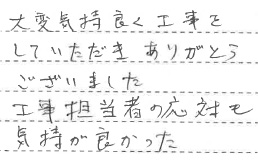 大変気持良く工事を
していただき ありがとう
ございました
工事担当者の応対も
気持が良かった